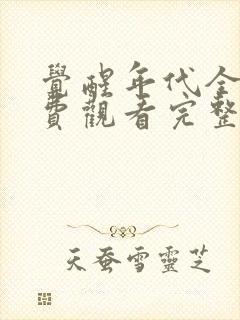 覺醒年代全
費觀看完整
天蚕雪靈芝